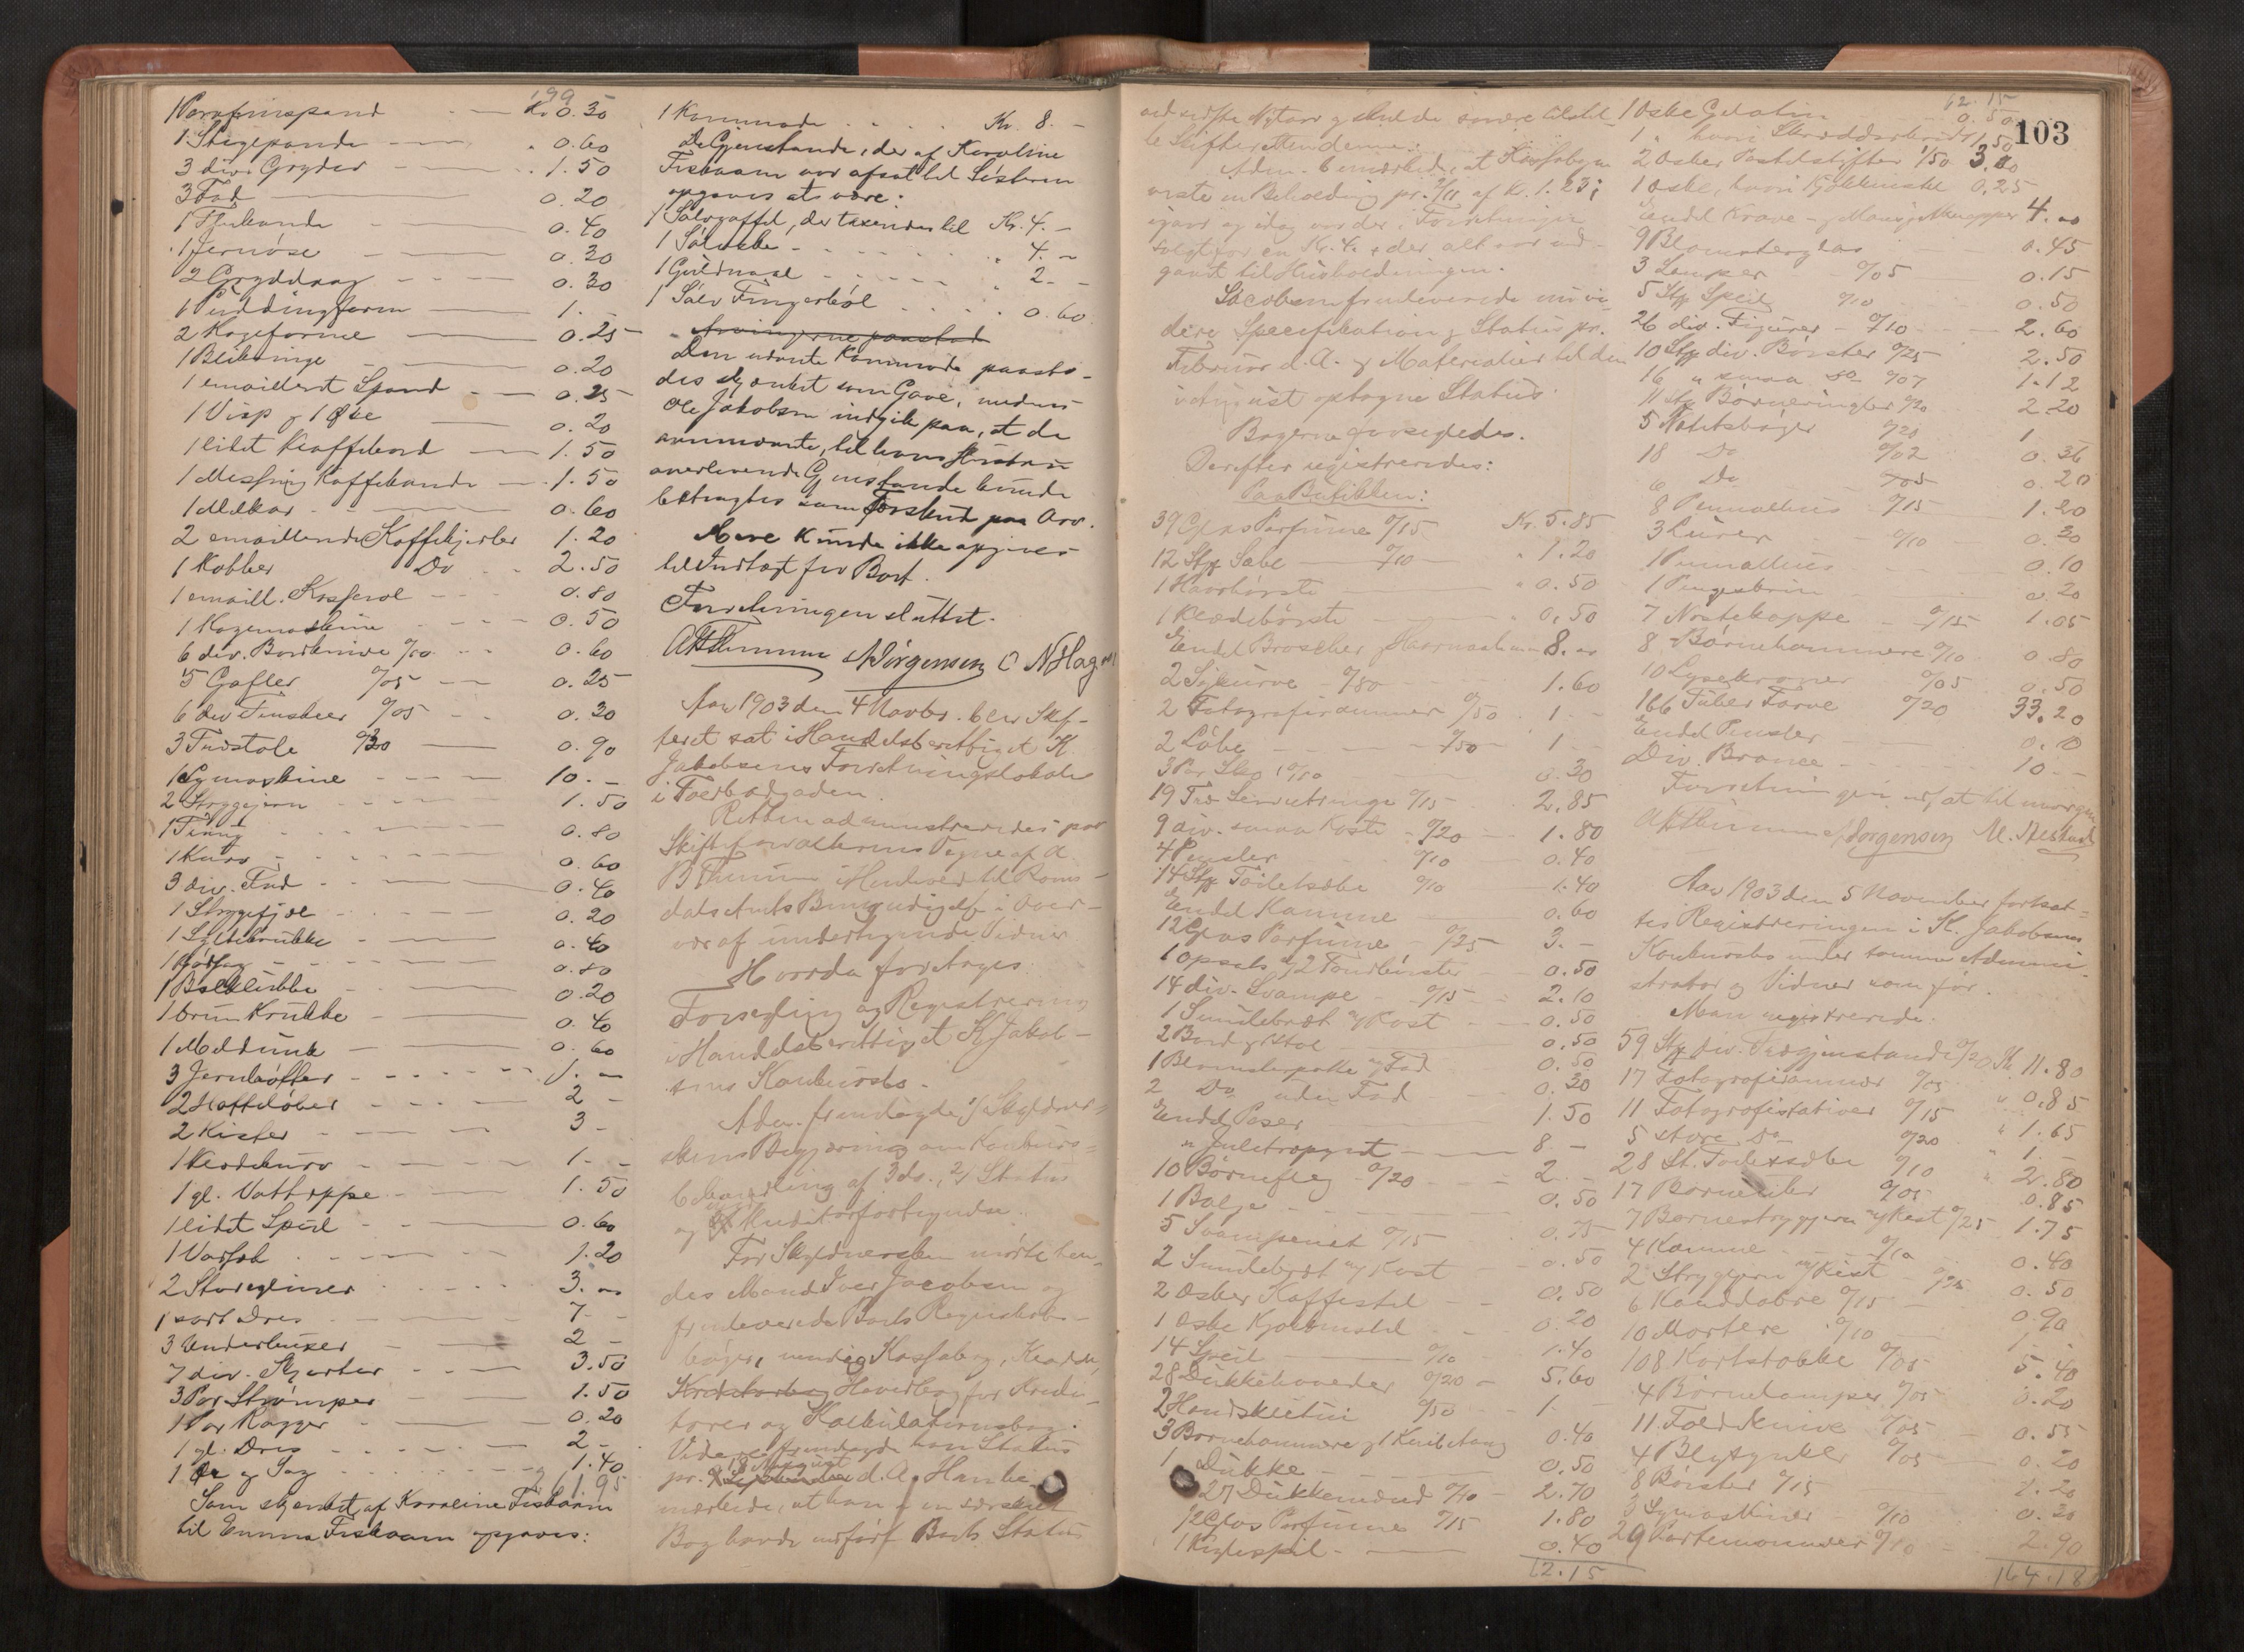 199
1 Parafinspand Kr 0.30
1 Stegepande 0.60
3 div. Gryder 1.50
3 Fad 0.20
1 Thekande 0.40
1 Jernøse 0.20
2 Grydelaag 0.30
1 Puddingform 1.-
2 Kageforme 0.25
1 Blikbringe 0.20
1 emailleret Spand 0.25
1 Visp og 1 Øse 0.20
1 lidet Kaffebord 1.50
1 Messing Kaffekande 1.50
1 Melkar 0.60
2 emaillerede Kaffekjedler 1.20
1 Kobber Do 2.50
1 emaill. Kasserol 0.80
1 Kagemaskine 0.50
6 div. Bordknive 0/10 0.60
5 Gafler 0/05 0.25
6 div Theskeer 0/05 0.30
3 Træstole 0/30 0.90
1 Symaskine 10.-
2 Strygejern 1.50
1 Tinning 0.80
1 Kurv 0.60
3 div. Fad 0.40
1 Strygefjøl 0.20
1 Syltekrukke 0.40
1 0.80
1 Bolleklubbe 0.20
1 brun Krukke 0.40
1 Meldunk 0.60
3 Jernkøfter 1.-
2 2 -
2 Kister 3 -
1 Klædekurv 1.-
1 gl. Vattæppe 1.50
1 lidet Speil 0.60
1 Vadsæk 1.20
2 Storegliner 3.00
1 sort Dres 7-
3 Underbuxer 2 -
7 div. Skjorter 3.50
3 Par Strømper 1.50
1 Par Ragger 0.20
1 gl. Dres 2-
1 Øx og Sag 1.40
261.95
Som skjenket af Karoline Fiskaam
til Emma Fiskaam opgaves:
1 Kommode Kr. 8.-
De Gjenstande, der af Karoline
Fiskaam var afsat til Søsteren
opgaves at være:
1 Sølvgaffel, der taxeredes til Kr. 4.-
1 4.-
1 Guldnaal 2.-
1 Sølv Fingerbøl 0.60
Arvingerne paastod
Den nævnte Kommode paasto-
des skjænket som Gave, medens
Ole Jakobsen indgik paa, at de
ovennævnte, til hans Hustru
overleverede Gjenstande kunde
betragtes som Forskud paa Arv.
Mere kunde ikke opgives
til Indtægt for Boet.
Forretningen sluttet.
A Thinn N Jørgensen O N Hagen
Aar 1903 den 4 Novbr. blev Skif-
teret sat i Handelsberettiget K.
Jakobsens Forretningslokale
i Torvbodgaden.
Retten administreredes paa
Skifteforvalterens Vegne af A.
B Thinn i Henhold til Roms-
dals Amts Bemyndigelse i Over-
vær af undertegnede Vidner
Hvorda foretoges
Forsegling og Registrering
i Handelsberettiget K Jakob-
sens Konkursbo.
Adm. fremlagde 1/ Skyldner-
skens Begjæring om Konkurs-
behandling af 3 ds., 2/ Status
og Kreditorfortegnelse.
For Skyldnersken mødte hen-
des Mand Iver Jacobsen og
fremleverede Boets Regnskabs-
bøger, nemlig Kassabog, Kladde,
Kreditorbog Hovedbog for Kredi-
torer og Kalkulationsbog.
Videre fremlagde han Status
pr. 18 August d. A. Han be-
mærkede, at han i en særskilt
Bog havde indført Boets Status
103
ved sidste Nytaar og skulde senere tilstil-
le Skifteretten denne.
Adm. bemærkede, at Kassabogen
viste en Beholdning pr. 2/11 af Kr. 1.23;
igaar og idag var der i Forretningen
solgt for en Kr. 4.- der alt var ud-
gaaet til Husholdningen.
Jacobsen fremleverede ende-
dere Specifikation og Status pr.
Februar d. A. og Materialier til den
i August optagne Status
Bøgerne forsegledes.
Derefter registreredes:
Paa Butikken:
39 Glas Parfume 0/15 Kr. 5.85
12 Stk Sæbe 0/10 1.20
1 Haarbørste 0.50
1 Klædebørste 0.50
Endel Broscher og Haarnaale 8.00
2 Sykurve 0/80 1.60
2 Fotografirammer 0/50 1.-
2 Løbe 0/50 1-
3 Par Sko 0/10 0.30
19 Træ Servietringe 0/15 2.85
9 div. smaa Koste 0/20 1.80
4 Pensler 0/10 0.40
14 Stk Toiletsæbe 0/10 1.40
Endel Kamme 0.60
12 Glas Parfume 0/25 3.-
1 Opsats og 2 Tandbørster 0.50
14 div. Svampe 0/15 2.10
1 Smulebræt og Kost 0.50
2 Bord og Stol 0.50
1 Blomsterpotte og Fad 0.50
2 Do uden Fad 0.30
Endel Poser 1.50
" Juletrepynt 8 -
10 Børneflag 0/20 2 -
1 Balje 0.50
5 Svampenet 0/15 0.75
2 Smulebræt og Kost 0.50
2 Æsker Kaffestel 0.50
1 Æske Kjøkkenstel 0.20
14 Speil 0/10 1.40
28 Dukkehoveder 0/20 5.60
2 Handsketui 0/50 1-
3 Børnehammere og 1 Knibetang 0.40
1 Dukke 0.50
27 Dukkemøbel 0/10 2.70
12 Glas Parfume 0/15 1.80
1 Keglespil 0.40
62.15
62.15
1 Æske Gelatin 0.50
1 " hvori 1.50
2 Æsker Pastelstifter 1/50 3.00
1 Æske, hvori Kjøkkenske 0,25
Endel Krave- og Mansjetknapper 4.00
9 Blomsterglas 0.45
3 Lamper 0/05 0.15
5 Stk Speil 0/10 0.50
26 div. Figurer 0/10 2.60
10 Stk div. Børster 0/25 2.50
16 " smaa do 0/07 1.12
11 Stk Børneringler 0/20 2.20
5 Notitsbøger 0/20 1
18 Do 0/02 0.36
6 Do 0/05 0.20
8 Pennalhus 0/15 1.20
3 Lurer 0/10 0.30
1 Pennalhus 0.10
1 Pengeskrin 0.20
7 Nautekoppe 0/15 1.05
8 Børnehammere 0/10 0.80
10 Lysekroner 0/05 0.50
166 Tuber Farve 0/20 33.20
Endel Pensler 0.10
Div. Bronce 10.-
Forretningen udsat til imorgen
A Thinn N Jørgensen M.
Aar 1903 den 5 November fortsat-
tes Registreringen i K. Jakobsens
Konkursbo under samme Admini-
strator og Vidner som før.
Man registrerede:
59 Stk div. Trægjenstande 0/20 Kr 11.80
17 Fotografirammer 0/05 " 0.85
11 Fotografistativer 0/15 " 1.65
5 store Do 0/20 " 1.-
28 St. Toiletsæbe 0/10 " 2.80
17 0/05 0.85
7 Børnestrygjern og Rist 0/25 1.75
4 Kamme 0/10 0.40
2 Strygejern og Rist 0/25 0.50
6 Kandelabre 0/15 0.90
10 Mortere 0/10 1.-
108 Kortstokke 0/05 5.40
4 Børnelamper 0/05 0.20
11 Foldeknive 0/05 0.55
4 0/05 0.20
8 Børster 0/15 1.20
3 Symaskiner 0/10 0.30
29 Portemonnæer 0/10 2.90
164.18